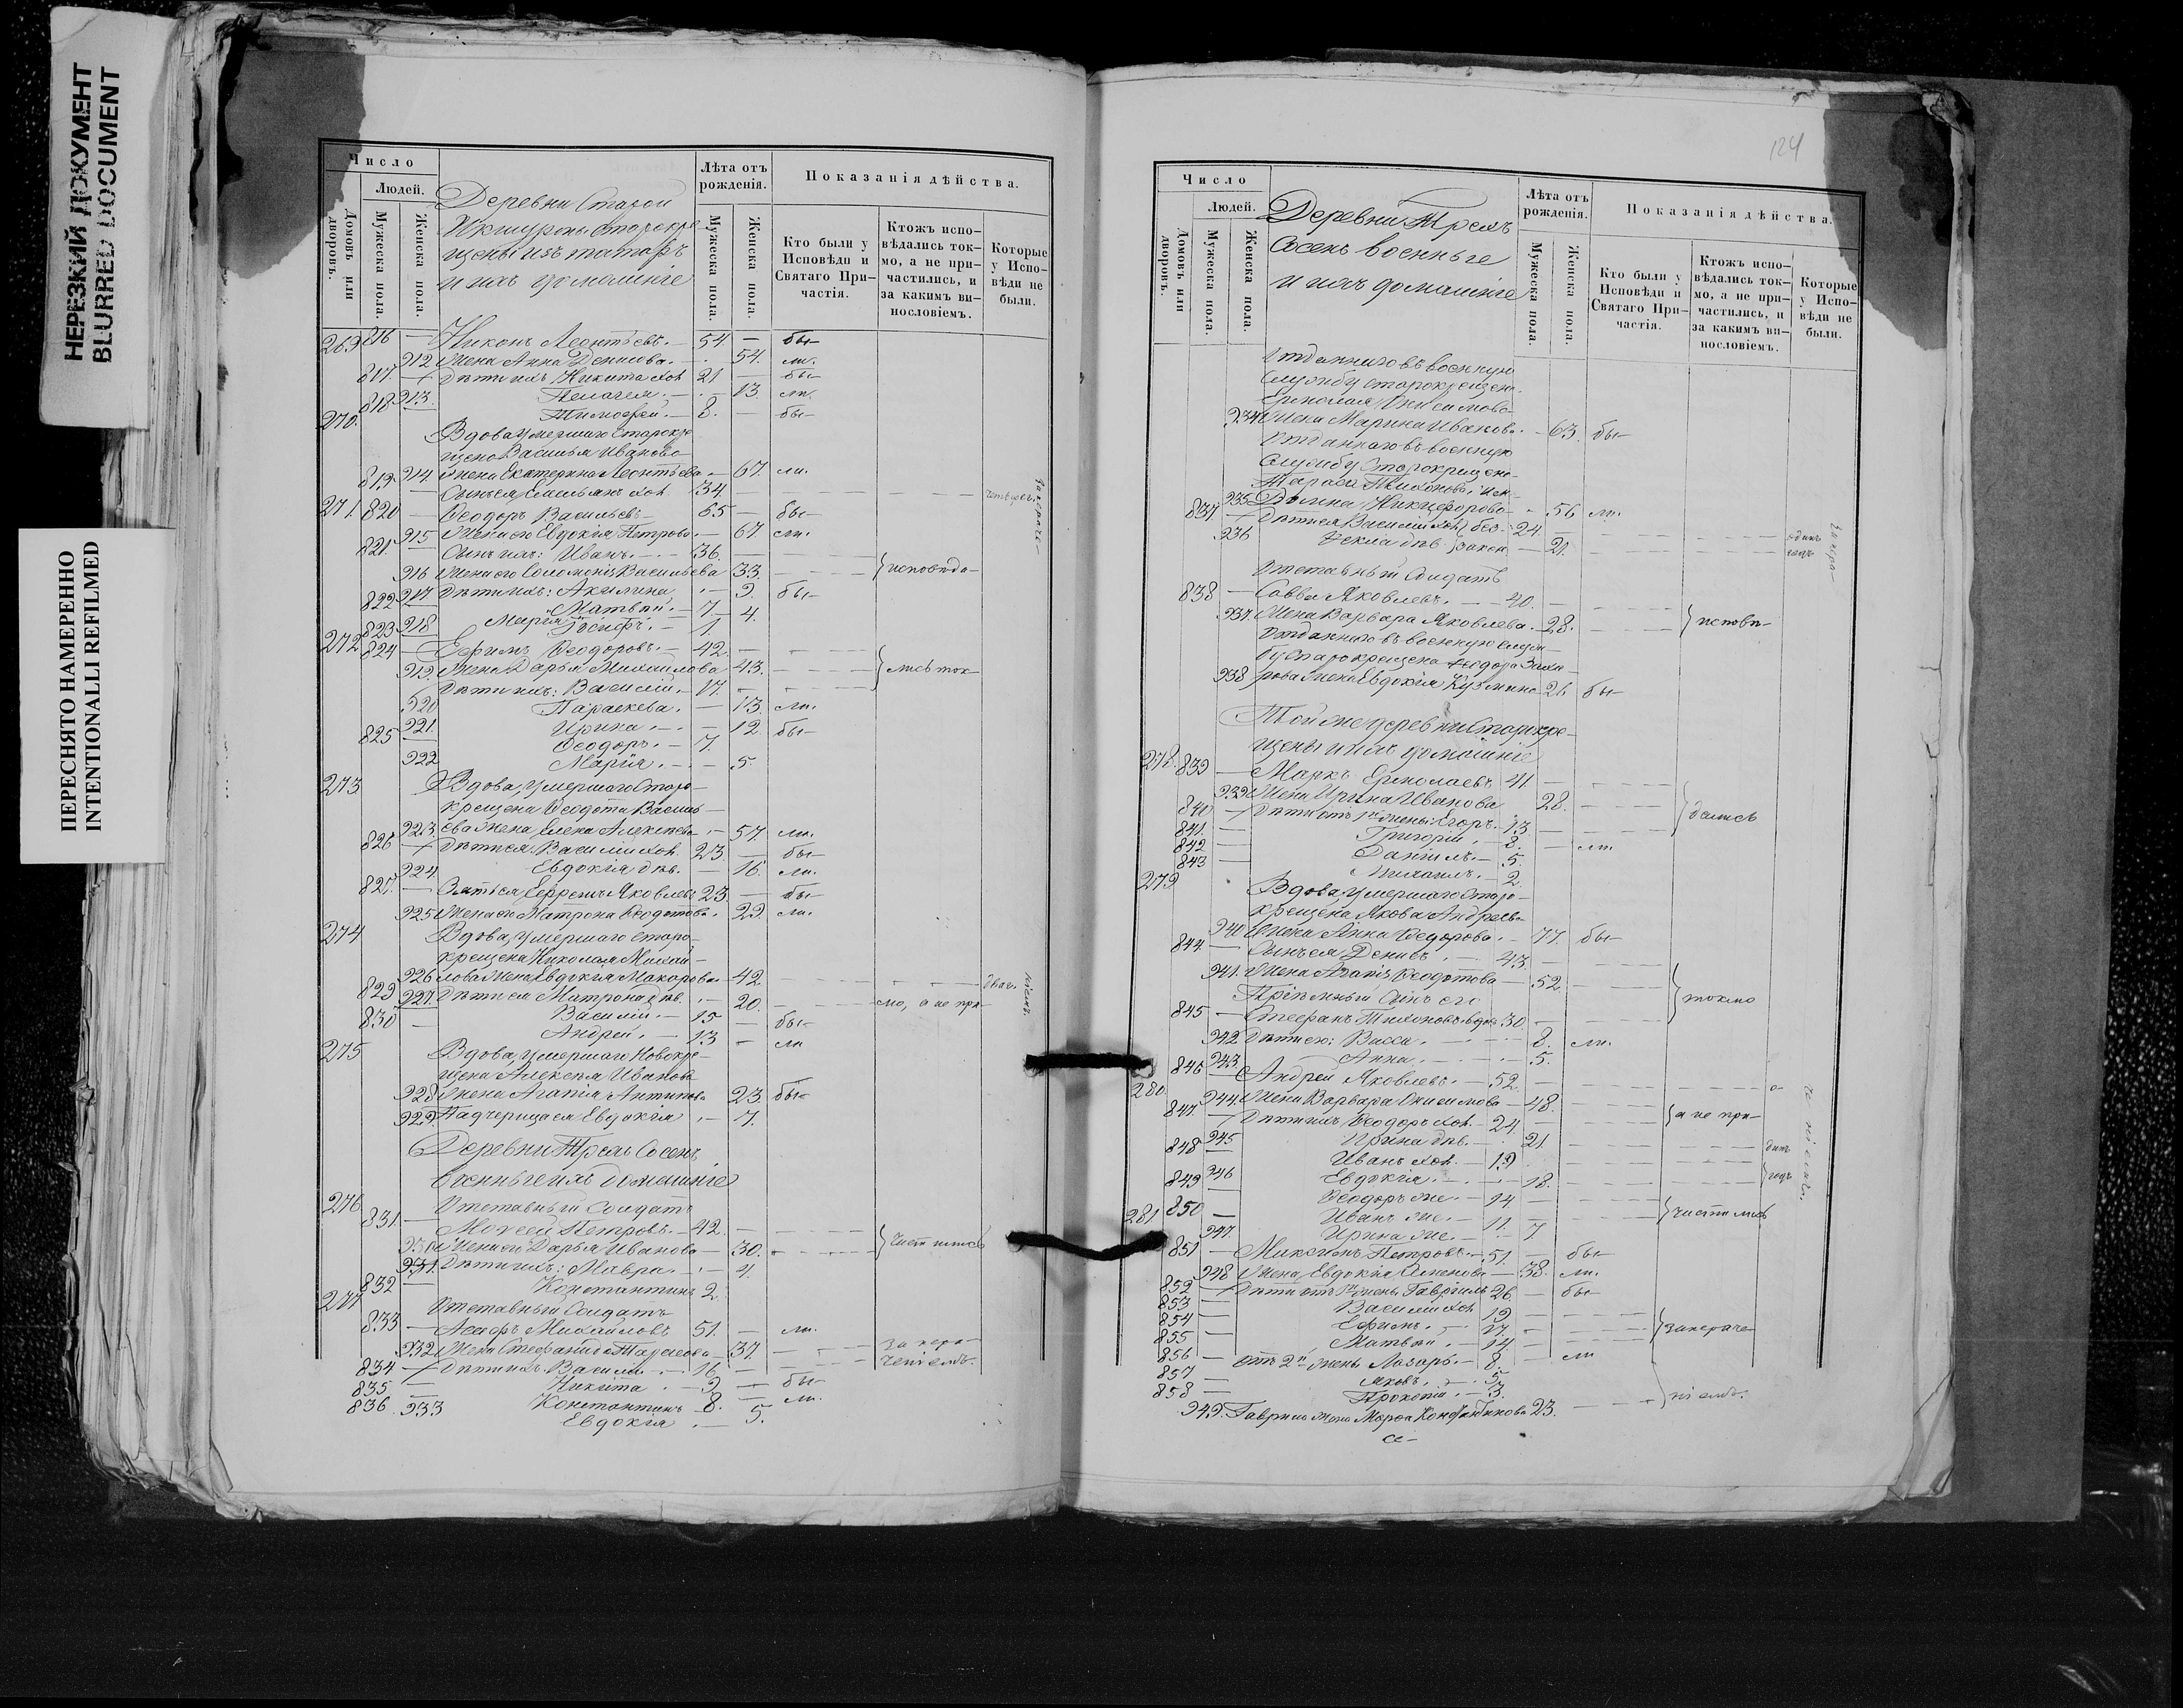 НЕРЕЗКИЙ ДОКУМЕНТ
BLURRED DOCUMENT
ПЕРЕСНЯТО НАМЕРЕННО
INTENTIONALLI REFILMED
Число
Людей.
Домовъ или дворовъ.
Мужеска пола.
Женска пола.
Деревни Старой
Икшурмы старокре-
щены изъ татаръ
и ихъ домашніе
Лѣта отъ рожденія.
Мужеска пола.
Женска пола.
Показанія дѣйства.
Кто были у Исповѣди и Святаго При-частія.
Ктожъ испо-вѣдались ток-мо, а не при-частились, и за какимъ ви-нословіемъ.
Которые у Испо-вѣди не были.
269 816 — Никонъ Леонтьевъ. — 54 — бы-
912 Жена Анна Денисова. — 54. ли.
817. — Дѣти ихъ: Никита хол. 21 — бы-
913. Пелагея. — 13. ли.
818 Тимофей. — 8. — бы-
270. Вдова, умершаго старокре-
щена Василья Иванова
914 жена Екатерина Леонтьева — 67. ли.
819 — Сынъ ея Емельянъ хол. 34. —
271. 820 — Ѳеодоръ Васильевъ — 65 — бы-
915 Жена его Евдокія Петрова — 67. ли.
821. — Сынъ ихъ: Иванъ. — 36. —
916 Жена его Соломонія Васильева 33. исповѣда-
917 Дѣти ихъ: Акилина — 9. бы-
822 Матвѣй. — 7.
918 Марія — 4.
823 Іосифъ. — 1.
272 824 — Ефимъ Ѳеодоровъ. — 42. —
919. Жена Дарья Михайлова 43. — лись ток-
Дѣти ихъ: Василій. — 17. —
920 Параскева. — 13. ли.
921. Ирина. — 12. бы-
825 — Ѳеодоръ. — 7.
922 Марія. — 5.
273 Вдова, умершаго старо-
крещена Ѳеодота Василь-
923 ева жена Елена Алексѣева — 57 ли.
826 — Дѣти ея: Василій хол. 23. — бы-
924. Евдокія дѣв. — 16. ли.
827. — Зять ея Ефремъ Яковлевъ 23. — бы-
925 Жена его Матрона Ѳеодотова. 29. ли.
274 Вдова, умершаго старо-
крещена Николая Михай-
926 лова жена Евдокія Макарова — 42
927. Дѣти ея: Матрона дѣв. — 20. — мо, а не при-
829 Василій. — 15 — бы-
830 — Андрей. — 13 — ли
275 Вдова, умершаго новокре-
щена Алексѣя Иванова
928 жена Агапія Антипова 23. бы-
929 Падчерица ея Евдокія — 7.
Деревни Трехъ Сосенъ
военные и ихъ домашніе
276 Отставный Солдатъ
831. — Моисей Петровъ. — 42. —
930 Жена его Дарья Иванова — 30. — частились
931. Дѣти ихъ: Мавра. — 4.
832 — Константинъ 2.
277 Отставный Солдатъ
833 — Михайловъ 51. — ли.
932 Жена Стефанида Тарасова — 37. — за нера-
834 — Дѣти ихъ: Василій — 16. — ченіемъ.
835 — Никита. — 9 — бы-
836. — Константинъ 8. — ли.
933 Евдокія. — 5.
124
Число
Людей.
Домовъ или дворовъ.
Мужеска пола.
Женска пола.
Деревни Трехъ
Сосенъ военные
и ихъ домашніе
Лѣта отъ рожденія.
Мужеска пола.
Женска пола.
Показанія дѣйства.
Кто были у Исповѣди и Святаго При-частія.
Ктожъ испо-вѣдались ток-мо, а не при-частились, и за какимъ ви-нословіемъ.
Которые у Испо-вѣди не были.
Отданнаго въ военную
службу старокрещена
Ермолая Онисимова
934 Жена Марина Иванова. — 63. бы-
Отданнаго въ военную
службу старокрещена
Тараса Тихонова жен-
935 Никифорова — 56 ли.
837. — Дѣти ея Василій хол. 24.
936 Ѳекла дѣв. — 21.
Отставный Солдатъ
838 — Савва Яковлевъ. — 40. —
937. Жена Варвара Яковлева. 28. исповѣ-
Отданнаго въ военную служ-
бу старокрещена Ѳедора Заха-
938 рова жена Евдокія Кузмина 26 бы-
Той же деревни старокре-
щены и ихъ домашніе
278. 839 — Маркъ Ермолаевъ 41. —
939 Жена Ирина Иванова 28. — дались
840 — Дѣти отъ 1й жены: Егоръ. 13 —
841. — Григорій — 8. — ли.
842 — Даніилъ. — 5.
843 — Михаилъ. — 2.
279 Вдова, умершаго старо-
крещена Якова Андреева
940 Жена Анна Ѳедорова. — 77. бы-
844. — Сынъ ея Денисъ. — 43. —
941. Жена Агапія Ѳеодотова — 52 — токмо
Пріемный сынъ его
845 — Стефанъ Тихоновъ вдов. 30. —
942. Дѣти его: Васса. — 8. ли.
943. Анна. — 5.
280. 846 — Андрей Яковлевъ. — 52. —
944. Жена Варвара Онисимова — 48. — а не при-
847. — Дѣти ихъ Ѳеодоръ хол. — 24. —
945 Ирина дѣв. — 21
848 — Иванъ хол. — 19.
946 Евдокія. — 18.
849 — Ѳеодоръ же. — 14 —
850 — Иванъ же. — 11. — частились
947. Ирина же. — 7
281 851 — Максимъ Петровъ. — 51. — бы-
948 Жена Евдокія Семенова — 38. ли.
852 — Дѣти отъ 1й жены: Гавріилъ 26. — бы-
853 — Василій хол. 19 —
854 — Ефимъ. — 17. — за нераче-
855 — Матвѣй. — 14 —
856 — отъ 2й жены Лазарь. — 8. — ли
857 — Яковъ. — 5.
858 — Прокопій. — 3. ніемъ.
949. Гавріила жена Марѳа Константинова 23.
се-